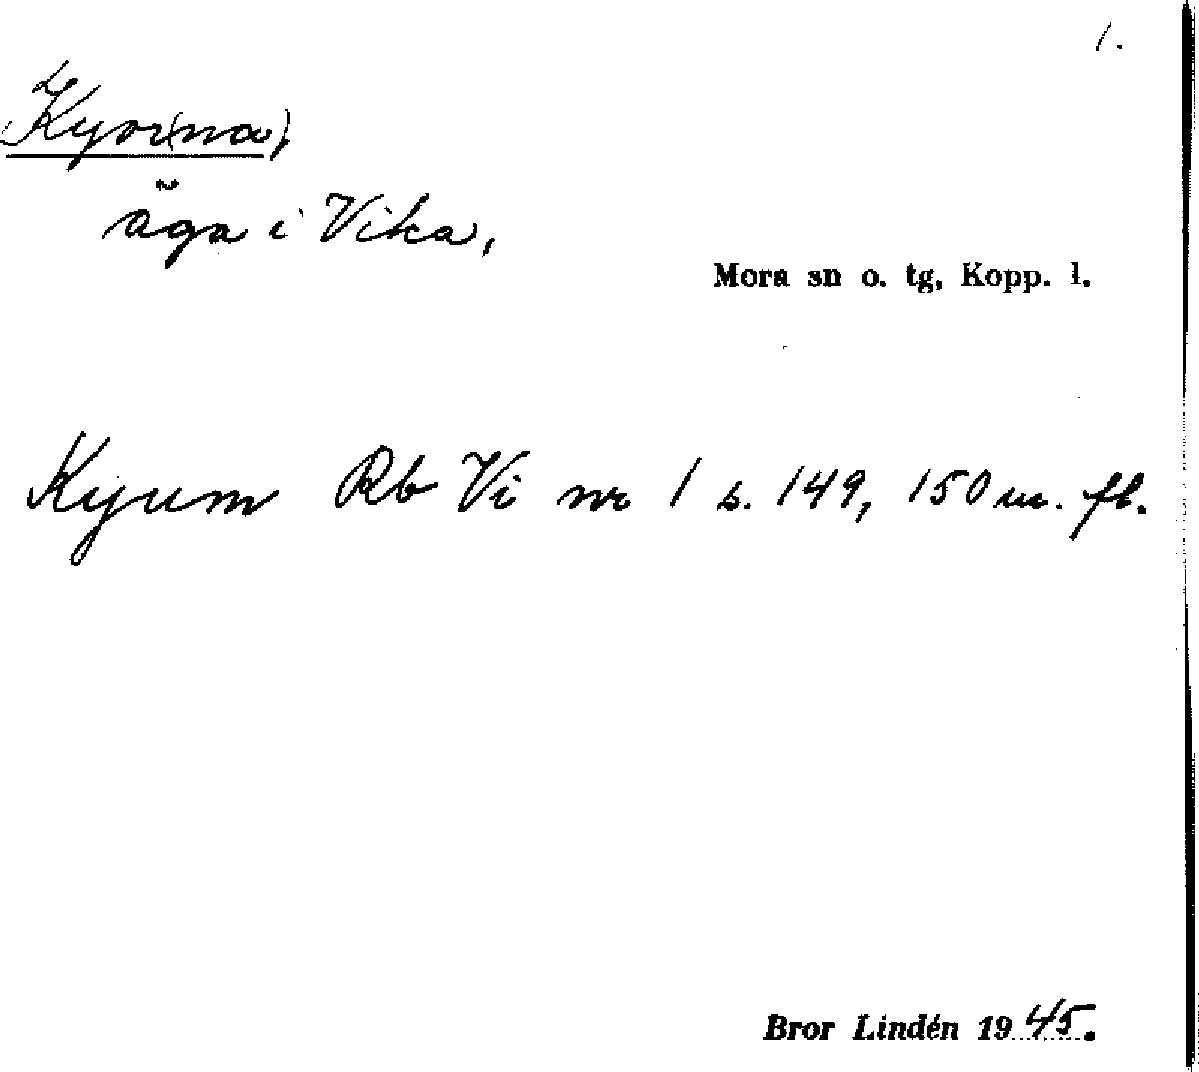 1.
Kyor(na),
äga i Vika,
Mora sn o. tg, Kopp. l.
Kyum Rb Vi nr 1 s. 149, 150 m. fl.
Bror Lindén 1945.